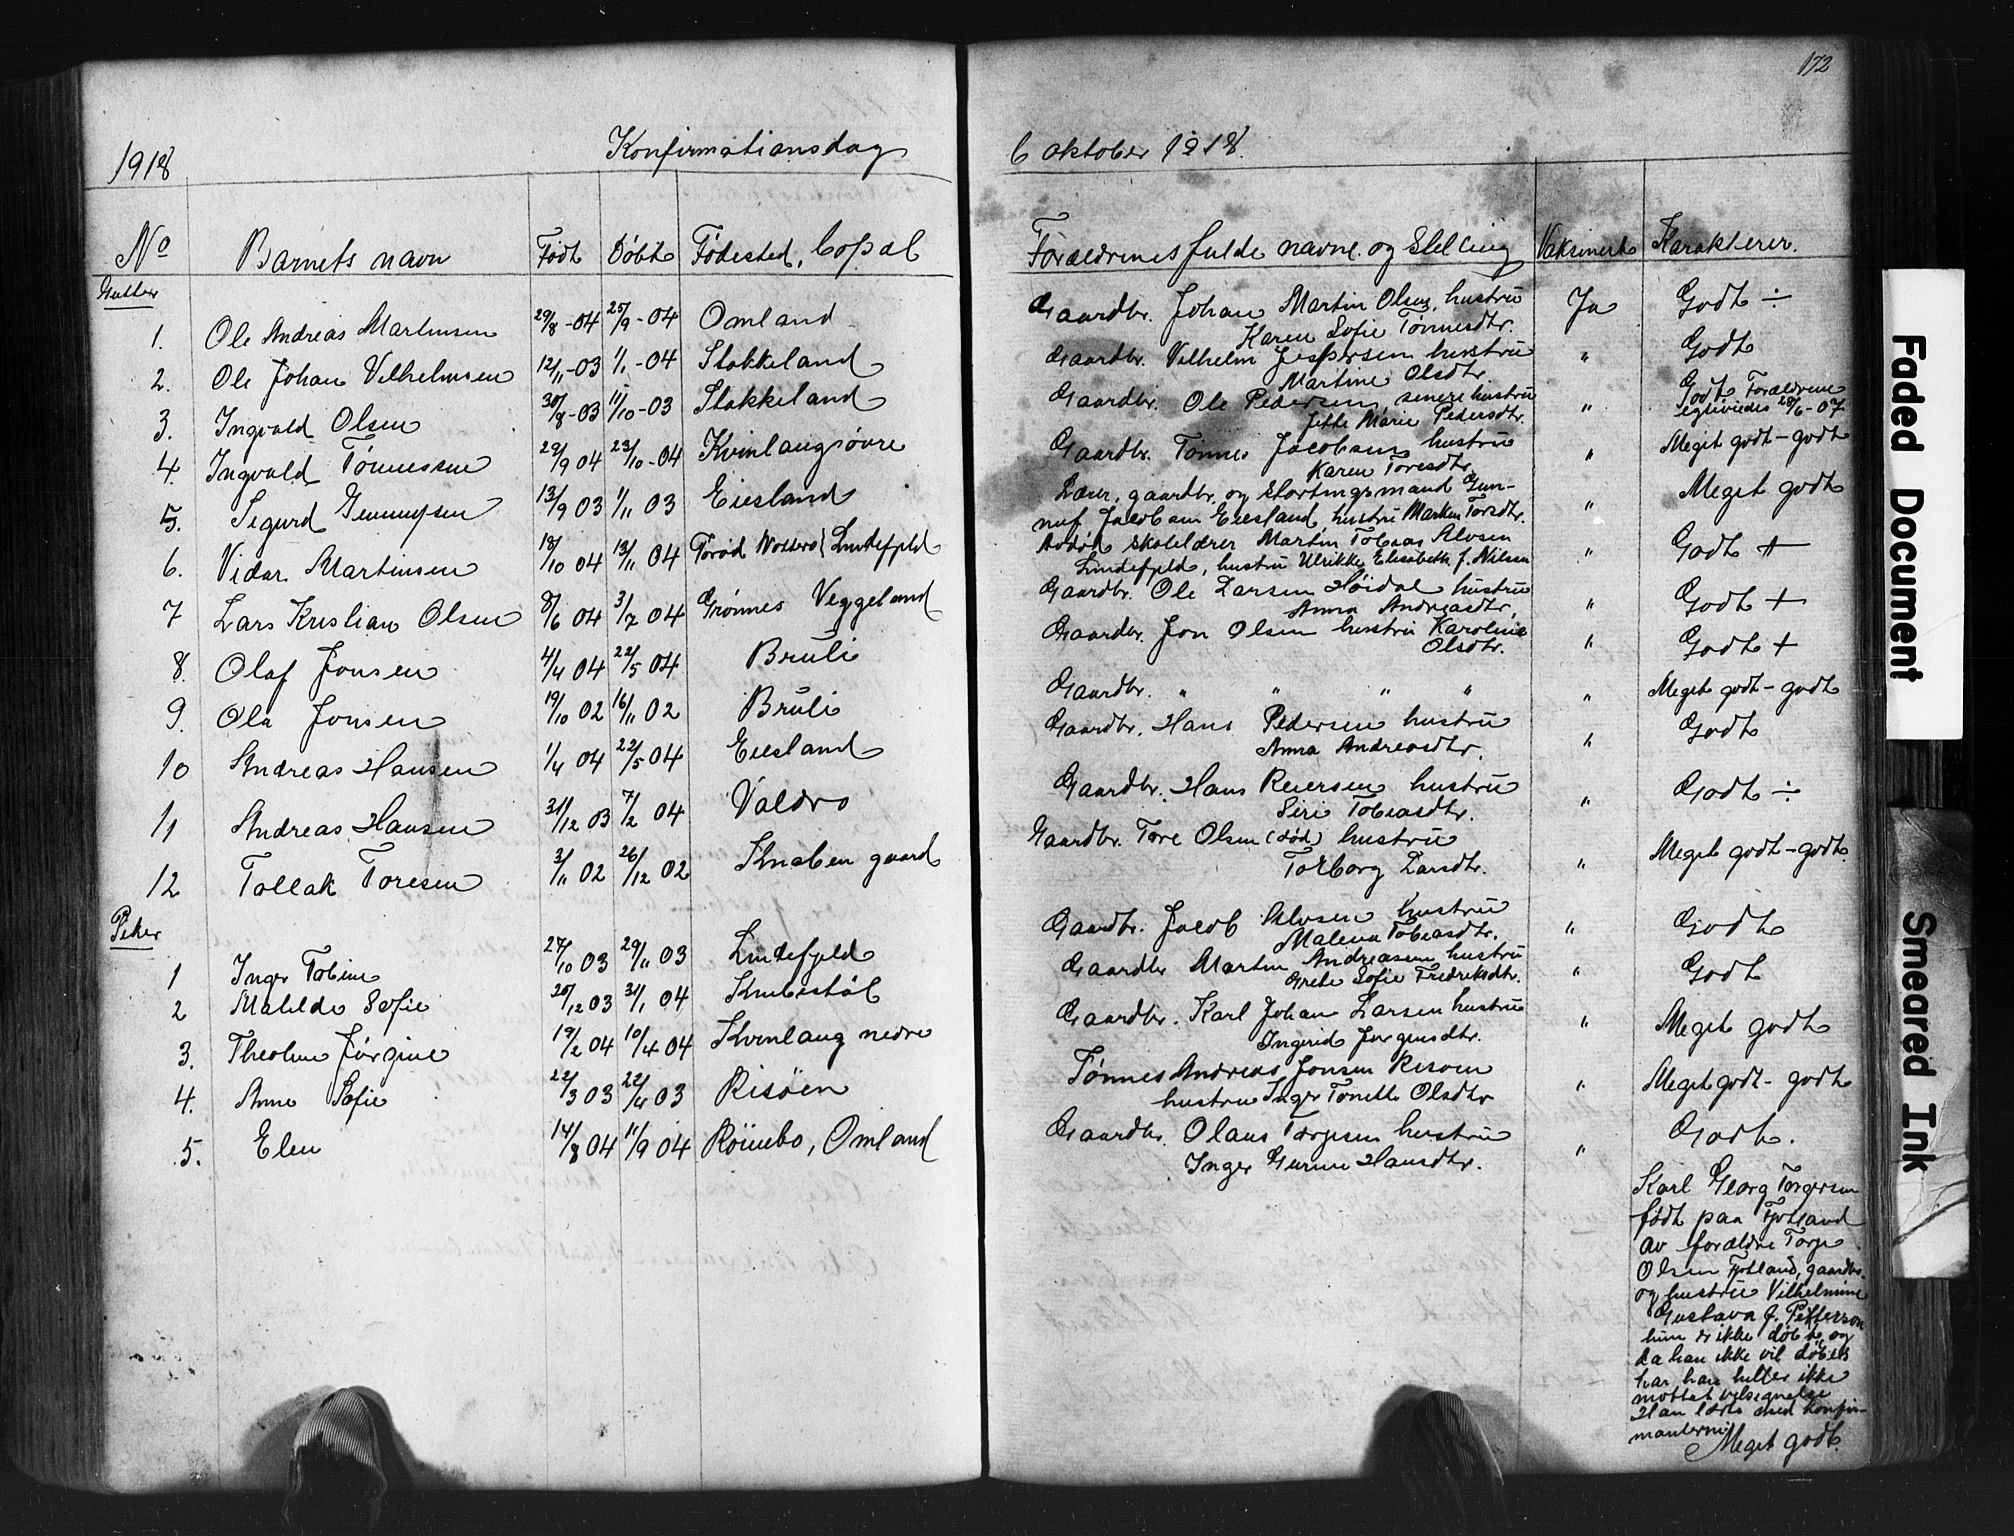 172
1918 Konfirmationsdag 6 oktober 1918.
No Barnets navn Født Døbt Fødested, bopæl Forældrenes fulde navne og stilling Vaksinert Karakterer.
Gutter
1. Ole Andreas Martinsen 29/8-04 25/9-04 Omland Gaardbr. Johan Martin Olsen, hustru Ja Godt ÷
Karen Sofie Tønnesdtr.
2. Ole Johan Vilhelmsen 12/11-03 1/1-04 Stakkeland Gaardbr. Vilhelm Jespersen hustru " Godt
Martine Olsdtr.
3. Ingvald Olsen 30/8-03 11/10-03 Stakkeland Gaardbr. Ole Pedersen, senere hustru " Godt Forældrene
Jette Marie Pedersdtr. egteviedes 28/6-07
4. Ingvald Tønnessen 29/9 04 23/10-04 Kvinlaugsøvre Gaardbr. Tønnes Jacobsen hustru " Meget godt-godt
Karen Toresdtr.
5. Sigurd Gunnufsen 13/9 03 1/11 03 Eiesland Lærer, gaardbr. og stortingsmand Gun- " Meget godt
nuf Jacobsen Eiesland, hustru Marken Torsdtr.
6. Vidar Martinsen 18/10 04 13/11 04 Lindefjeld Avdød skolelærer Martin Tobias Alvsen " Godt ++
Lindefjeld, hustru Ulrikke Elisabeth f. Nilsen
7 Lars Kristian Olsen 8/6 04 3/7 04 Grønnes Veggeland Gaardbr. Ole Larsen Høidal hustru " Godt +
Anna Andreasdtr,
8. Olaf Jonsen 4/4 04 22/5 04 Bruli Gaardbr. Jon Olsen hustru Karoline " Godt +
Olsdtr.
9. Ola Jonsen 19/10 02 16/11 02 Bruli Gaardbr. " " " " " Meget godt-godt
10 Andreas Hansen 1/4 04 22/5 04 Eiesland Gaardbr. Hans Pedersen hustru " Godt
Anna Andreasdtr.
11 Andreas Hansen 31/12 03 7/2 04 Valdro Gaardbr. Hans Reiersen hustru " Godt ÷
Siri Tobiasdtr.
12 Tollak Toresen 3/11 02 26/12 02 Knaben gaard Gaardbr. Tore Olsen (død) hustru " Meget godt-godt.
Tolborg Larsdtr.
Piker
1 Inger Tobine 27/10 03 29/11 03 Lindefjeld Gaardbr. Jacob Alvsen hustru " Godt
Malena Tobiasdtr.
2 Matilde Sofie 20/12 03 31/1 04 Knibestøl Gaardbr Martin Andreasen hustru " Godt
Grete Sofie Fredriksdtr.
3. Theoline Jørgine 19/2 04 10/4 04 Kvinlaug nedre Gaardbr. Karl Johan Larsen hustru " Meget godt
Ingerid Jørgensdtr.
4. Anne Sofie 22/3 03 22/4 03 Risøen Tønnes Andreas Jonsen Risøen " Meget godt-godt
hustru Inger Tonette Olsdtr
5. Elen 14/8 04 11/9 04 Röinebo, Omland Gaardbr. Olaus Torjesen hustru " Godt.
Inger Gurine Hansdtr.
Karl Georg Torgersen
født paa Fjotland
av forældre Torje
Olsen Fjotland, gaardbr.
og hustru Vilhelmine
Gustava f. Petterson
han er ikke døbt, og
da han ikke vil døbes
har han heller ikke
mottat velsignelse
Han læste med konfir-
manterne
Meget godt.
Faded Document
Smeared Ink